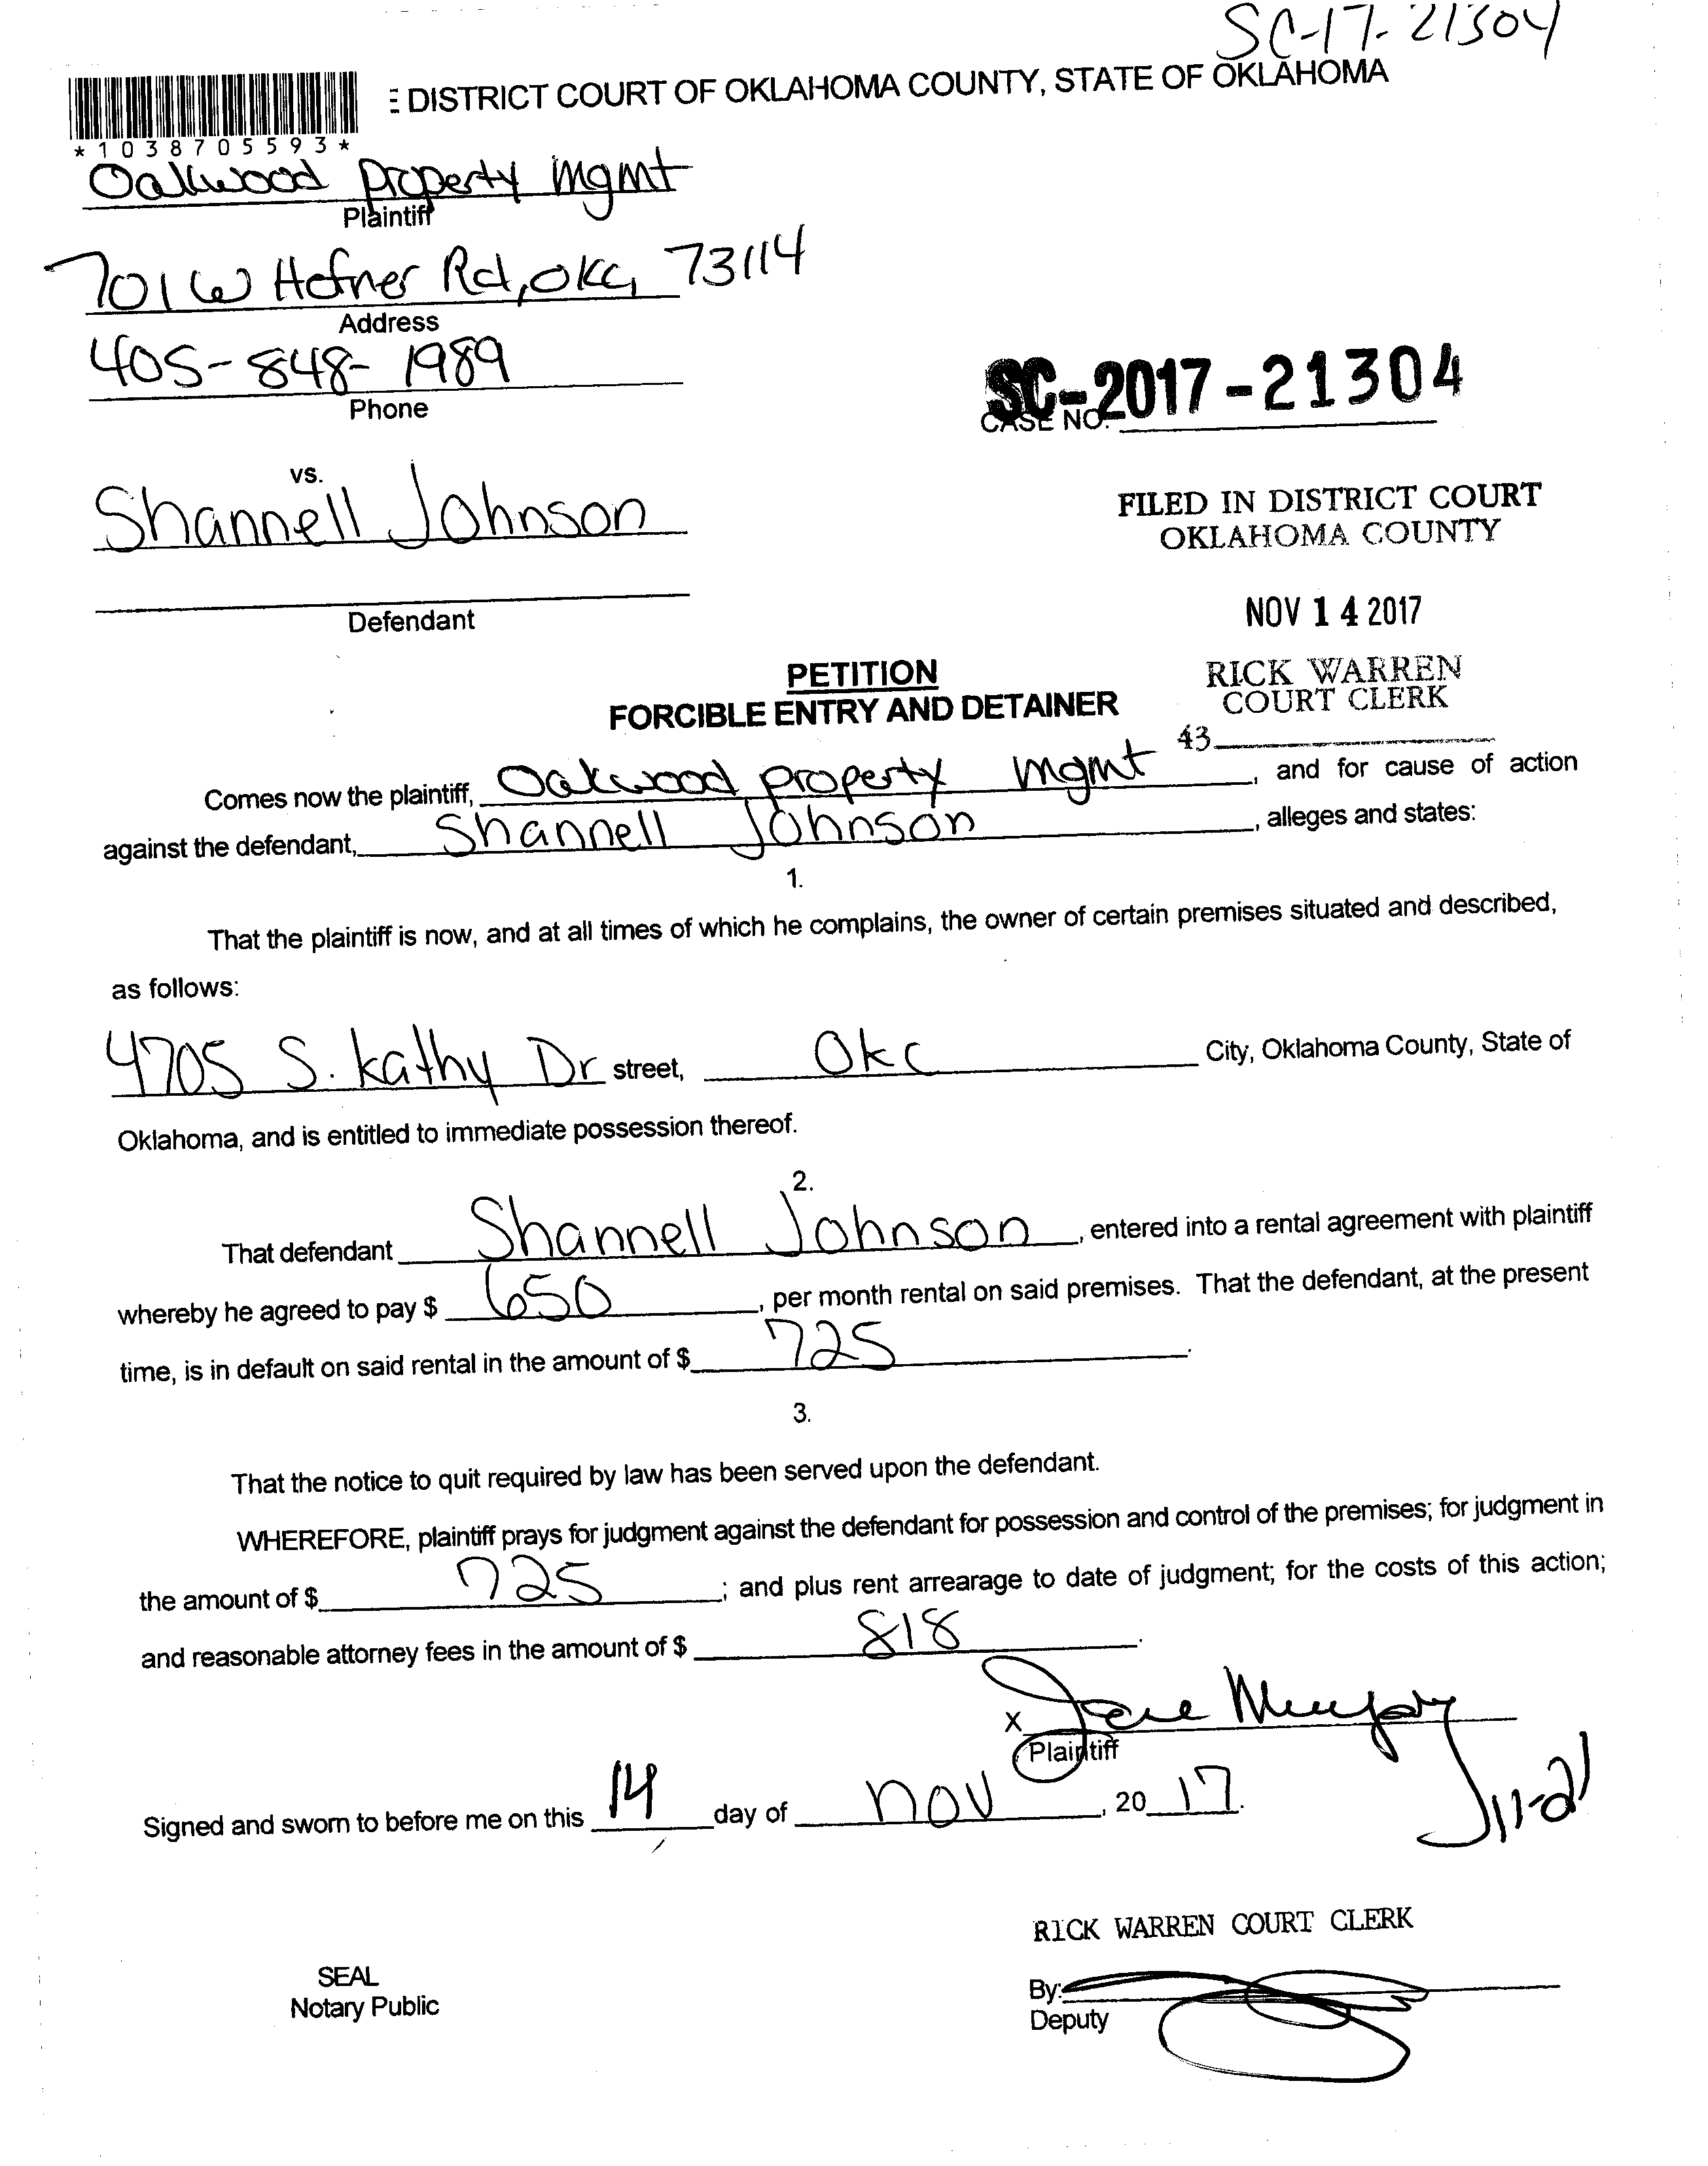 SC-17-21304
E DISTRICT COURT OF OKLAHOMA COUNTY, STATE OF OKLAHOMA
*1038705593*
Oakwood property mgmt
Plaintiff
701 W Hefner Rd, OKC, 73114
Address
405-848-1989
Phone
SC-2017-21304
CASE NO.
vs.
Shannell Johnson
FILED IN DISTRICT COURT
OKLAHOMA COUNTY
Defendant
NOV 14 2017
PETITION
FORCIBLE ENTRY AND DETAINER
RICK WARREN
COURT CLERK
43
Comes now the plaintiff, Oakwood property mgmt, and for cause of action
against the defendant, Shannell Johnson, alleges and states:
1.
That the plaintiff is now, and at all times of which he complains, the owner of certain premises situated and described,
as follows:
4705 S. Kathy Dr street, OKC City, Oklahoma County, State of
Oklahoma, and is entitled to immediate possession thereof.
2.
That defendant Shannell Johnson, entered into a rental agreement with plaintiff
whereby he agreed to pay $ 650, per month rental on said premises. That the defendant, at the present
time, is in default on said rental in the amount of $ 725.
3.
That the notice to quit required by law has been served upon the defendant.
WHEREFORE, plaintiff prays for judgment against the defendant for possession and control of the premises; for judgment in
the amount of $ 725; and plus rent arrearage to date of judgment; for the costs of this action;
and reasonable attorney fees in the amount of $ 818.
X
Plaintiff
Signed and sworn to before me on this 14 day of nov, 20 17.
J 11-21
RICK WARREN COURT CLERK
SEAL
Notary Public
By:
Deputy